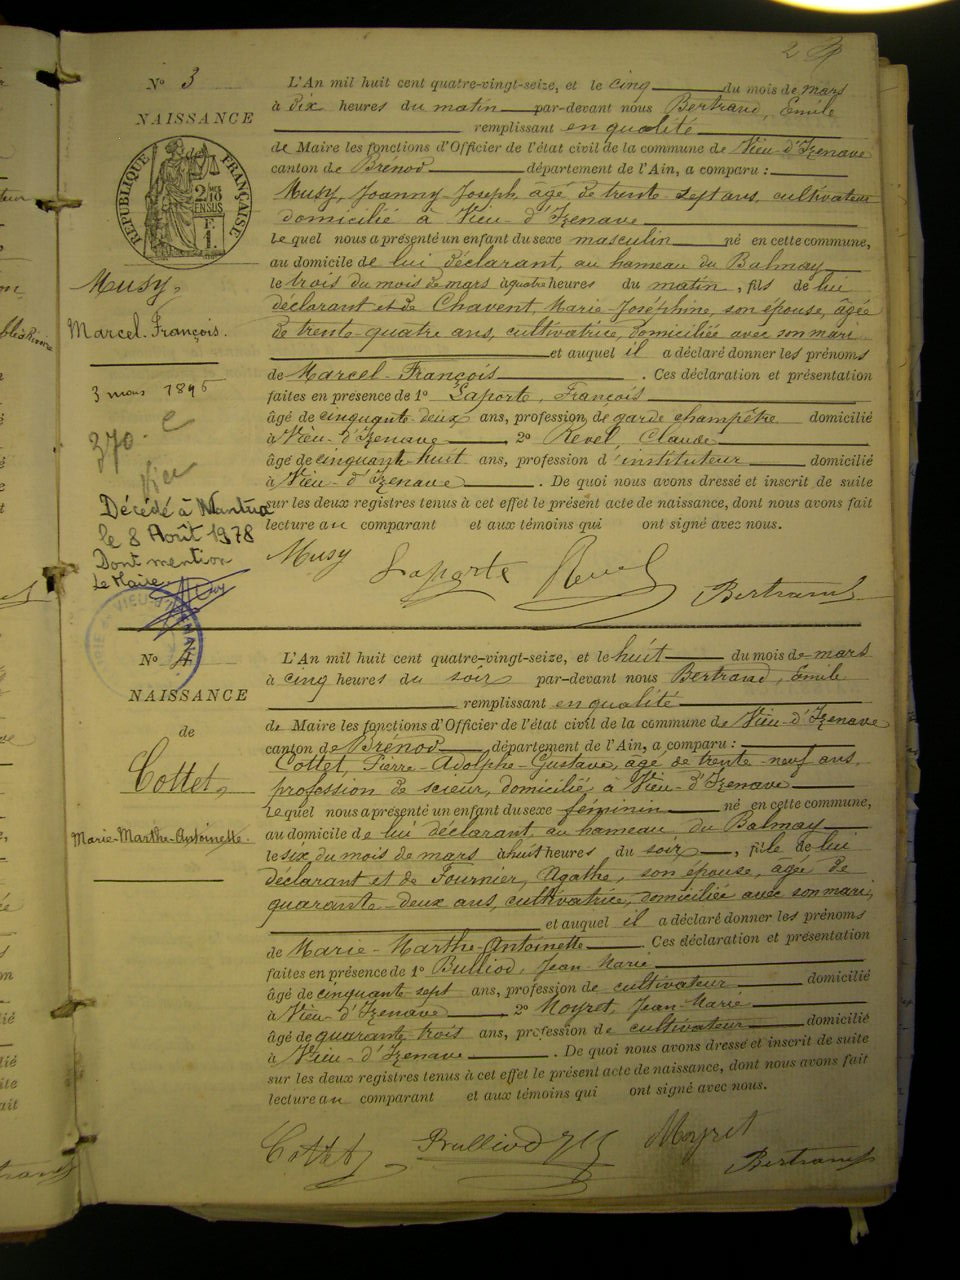 2
N° 3
NAISSANCE
RÉPUBLIQUE FRANÇAISE
2 MES 10 EN SUS
F. 1.
Musy,
Marcel-François.
3 mars 1896
370
Vieu
Décédé à Nantua
le 8 Août 1978
Dont mention
Le Maire
L'An mil huit cent quatre-vingt-seize, et le cinq du mois de mars
à dix heures du matin par-devant nous Bertrand, Emile
remplissant en qualité
de Maire les fonctions d'Officier de l'état civil de la commune de Vieu-d'Izenave
canton de Brénod département de l'Ain, a comparu :
Musy, Joanny-Joseph, âgé de trente-sept ans, cultivateur
domicilié à Vieu-d'Izenave
Lequel nous a présenté un enfant du sexe masculin né en cette commune,
au domicile de lui déclarant, au hameau du Balmay
le trois du mois de mars à quatre heures du matin, fils de lui
déclarant et de Chavent, Marie-Joséphine, son épouse, âgée
de trente-quatre ans, cultivatrice, domiciliée avec son mari
et auquel il a déclaré donner les prénoms
de Marcel-François. Ces déclaration et présentation
faites en présence de 1° Laporte, François
âgé de cinquante-deux ans, profession de garde champêtre domicilié
à Vieu-d'Izenave, 2° Revel, Claude
âgé de cinquante-huit ans, profession d'instituteur domicilié
à Vieu-d'Izenave. De quoi nous avons dressé et inscrit de suite
sur les deux registres tenus à cet effet le présent acte de naissance, dont nous avons fait
lecture au comparant et aux témoins qui ont signé avec nous.
Musy Laporte Revel Bertrand
N° 4
NAISSANCE
de
Cottet,
Marie-Marthe-Antoinette.
L'An mil huit cent quatre-vingt-seize, et le huit du mois de mars
à cinq heures du soir par-devant nous Bertrand, Emile
remplissant en qualité
de Maire les fonctions d'Officier de l'état civil de la commune de Vieu-d'Izenave
canton de Brénod département de l'Ain, a comparu :
Cottet, Pierre-Adolphe-Gustave, âgé de trente-neuf ans,
profession de scieur, domicilié à Vieu-d'Izenave
Lequel nous a présenté un enfant du sexe féminin né en cette commune,
au domicile de lui déclarant, au hameau du Balmay
le six du mois de mars à huit heures du soir, fille de lui
déclarant et de Fournier, Agathe, son épouse, âgée de
quarante-deux ans, cultivatrice, domiciliée avec son mari,
et auquel il a déclaré donner les prénoms
de Marie-Marthe-Antoinette. Ces déclaration et présentation
faites en présence de 1° Bulliod, Jean-Marie
âgé de cinquante-sept ans, profession de cultivateur domicilié
à Vieu-d'Izenave, 2° Moyret, Jean-Marie
âgé de quarante-trois ans, profession de cultivateur domicilié
à Vieu-d'Izenave. De quoi nous avons dressé et inscrit de suite
sur les deux registres tenus à cet effet le présent acte de naissance, dont nous avons fait
lecture au comparant et aux témoins qui ont signé avec nous.
Cottet Bulliod Moyret
Bertrand